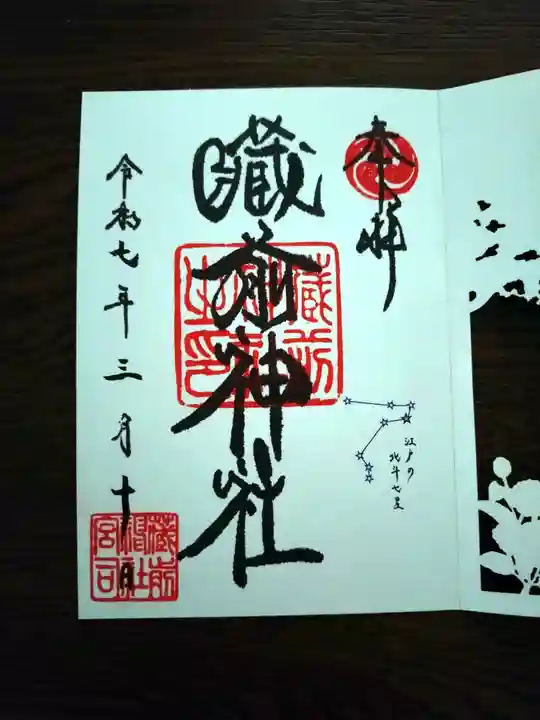 奉拝
江戸の
北斗七星
蔵前神社
蔵前
神社
之印
令和七年三月十日
蔵前
神社
宮司